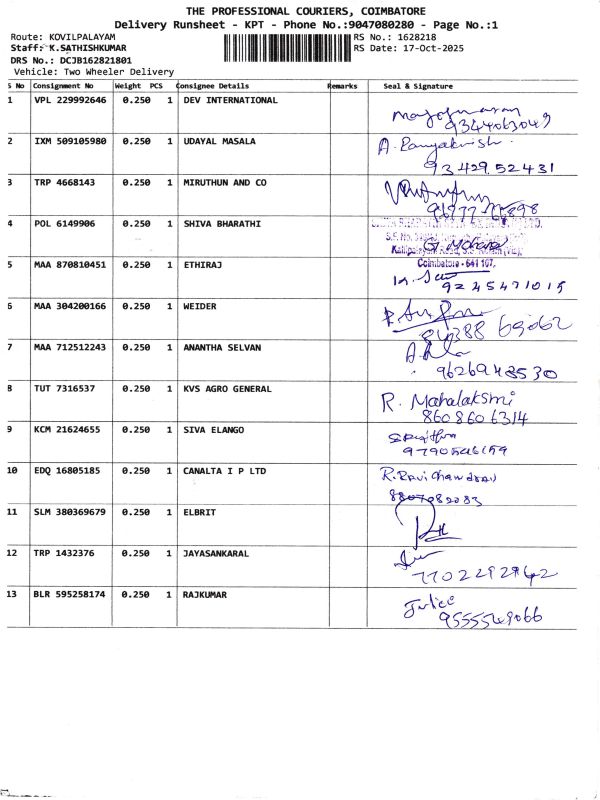 THE PROFESSIONAL COURIERS, COIMBATORE
Delivery Runsheet - KPT - Phone No.:9047080280 - Page No.:1
Route: KOVILPALAYAM RS No.: 1628218
Staff: K.SATHISHKUMAR RS Date: 17-Oct-2025
DRS No.: DCJB162821801
Vehicle: Two Wheeler Delivery
S No Consignment No Weight PCS Consignee Details Remarks Seal & Signature
1 VPL 229992646 0.250 1 DEV INTERNATIONAL
9344063049
2 IXM 509105980 0.250 1 UDAYAL MASALA
93429 52431
3 TRP 4668143 0.250 1 MIRUTHUN AND CO
4 POL 6149906 0.250 1 SHIVA BHARATHI
Coimbatore - 641 107.
5 MAA 870810451 0.250 1 ETHIRAJ
9245471015
6 MAA 304200166 0.250 1 WEIDER
7 MAA 712512243 0.250 1 ANANTHA SELVAN
9626948530
8 TUT 7316537 0.250 1 KVS AGRO GENERAL
R. Mahalakshmi
8608606314
9 KCM 21624655 0.250 1 SIVA ELANGO
10 EDQ 16805185 0.250 1 CANALTA I P LTD
R. Ravichandran
11 SLM 380369679 0.250 1 ELBRIT
12 TRP 1432376 0.250 1 JAYASANKARAL
7702292942
13 BLR 595258174 0.250 1 RAJKUMAR